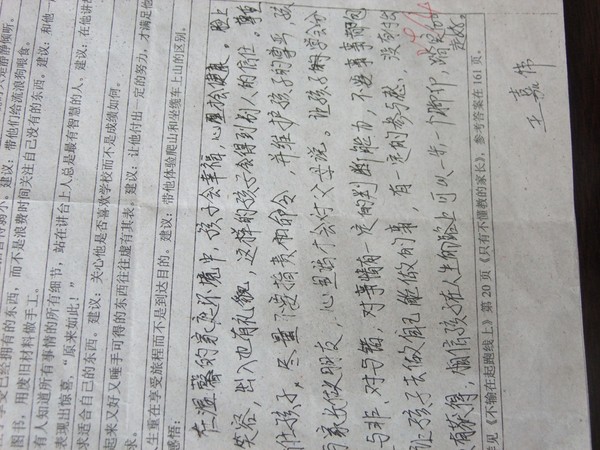 建议：带他们给流浪狗喂食。
享受已经拥有的东西，而不是浪费时间关注自己没有的东西。建议：和他一
图书，用废旧材料做手工。
有人知道所有事情的所有细节，站在讲台上人总是最有智慧的人。建议：在他讲
表现出惊意，“原来如此！”
求适合自己的东西。建议：关心他是否喜欢学校而不是成绩如何。
起来又好又唾手可得的东西往往虚有其表。建议：让他付出一定的努力，才满足他
求。
人生重在享受旅程而不是到达目的。建议：带他体验爬山和坐缆车上山的区别。
感悟：
在温馨的家庭环境中，孩子会幸福，心里接健康。脸上
笑容，出入也有礼貌，这样的孩子会得到别人的信任。尊重
孩子，尽量不要指责和命令，并维护孩子的尊严，孩
家长做朋友，心里话才会对父母说。让孩子们学会分
与非，对与错，对事情有一定的判断能力，不要事事都包
让孩子去做自己能做的事，有一定的参与感，没有付出
没有获得，搀扶孩子在人生的路上可以一步一个脚印，踏实
走好。
见《不输在起跑线上》第20页《只有不懂教的家长》，参考答案在161页。
王嘉伟